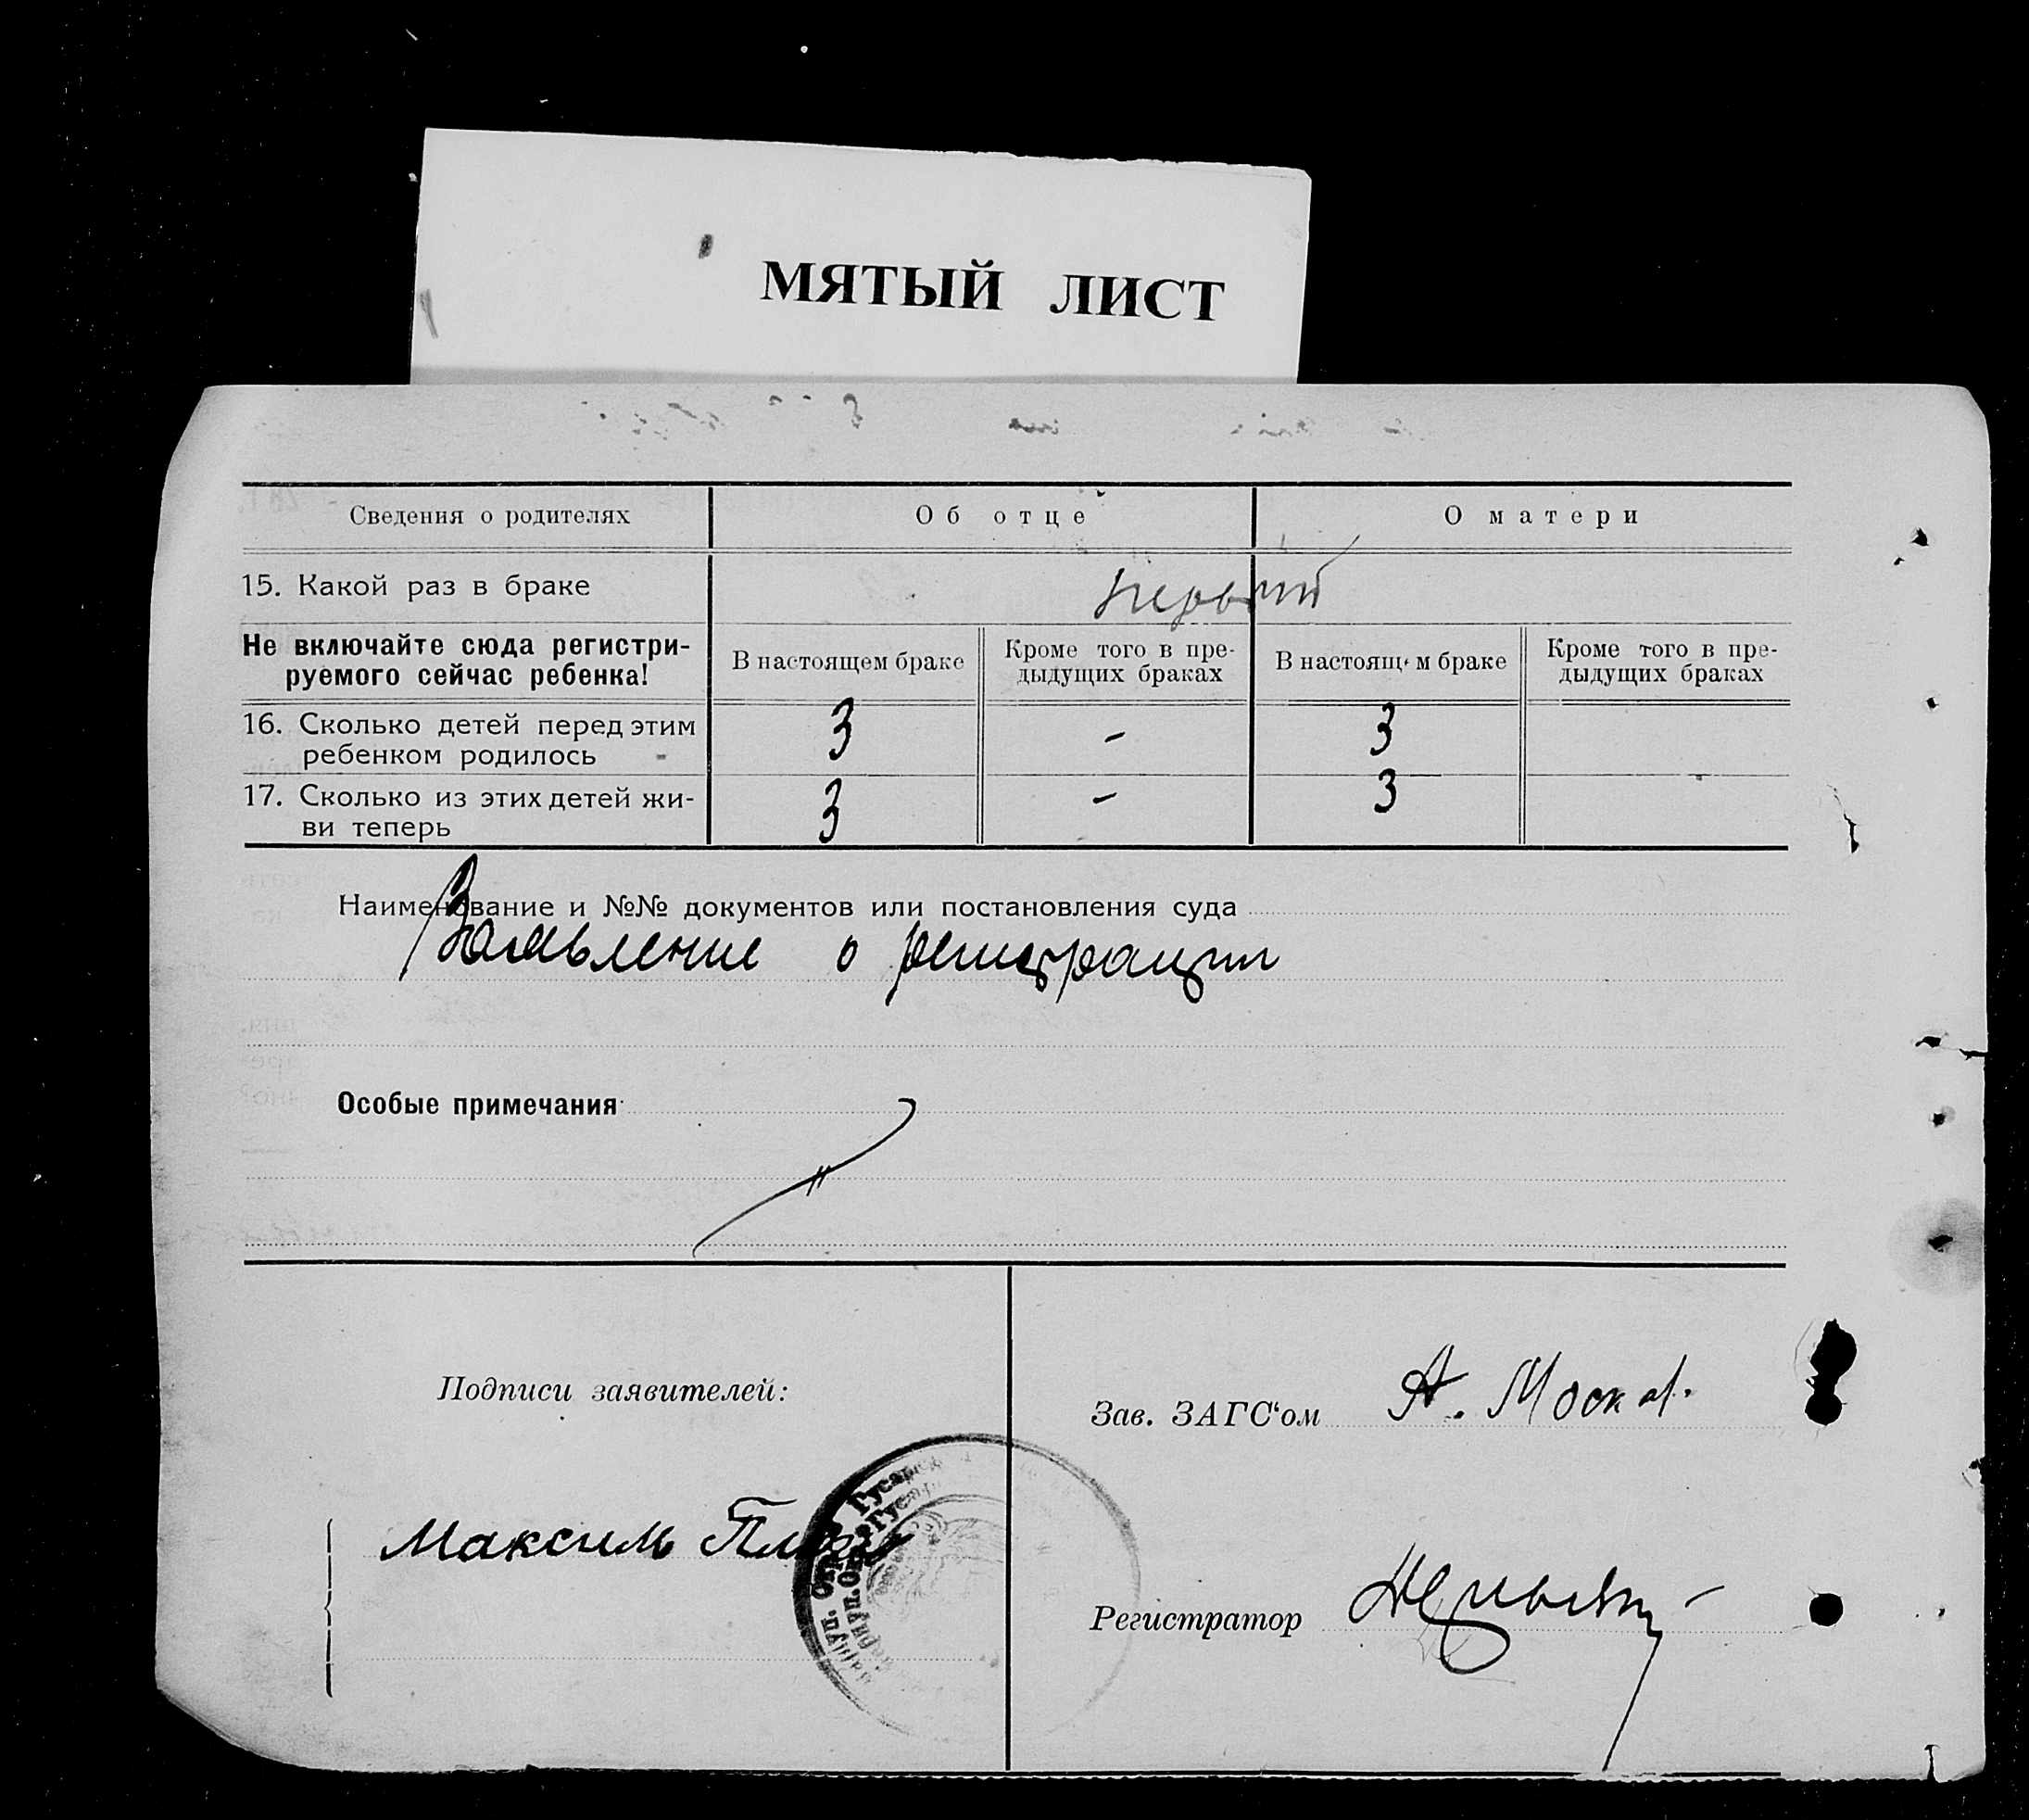 МЯТЫЙ ЛИСТ
Сведения о родителях Об отце О матери
15. Какой раз в браке первый
Не включайте сюда регистри-
руемого сейчас ребенка!
В настоящем браке Кроме того в пре-
дыдущих браках
В настоящ м браке Кроме того в пре-
дыдущих браках
16. Сколько детей перед этим
ребенком родилось 3 - 3
17. Сколько из этих детей жи-
ви теперь 3 - 3
Наименование и №№ документов или постановления суда
Заявление о регистрации
Особые примечания
Подписи заявителей:
Зав. ЗАГС'ом А.
Максимъ
Регистратор